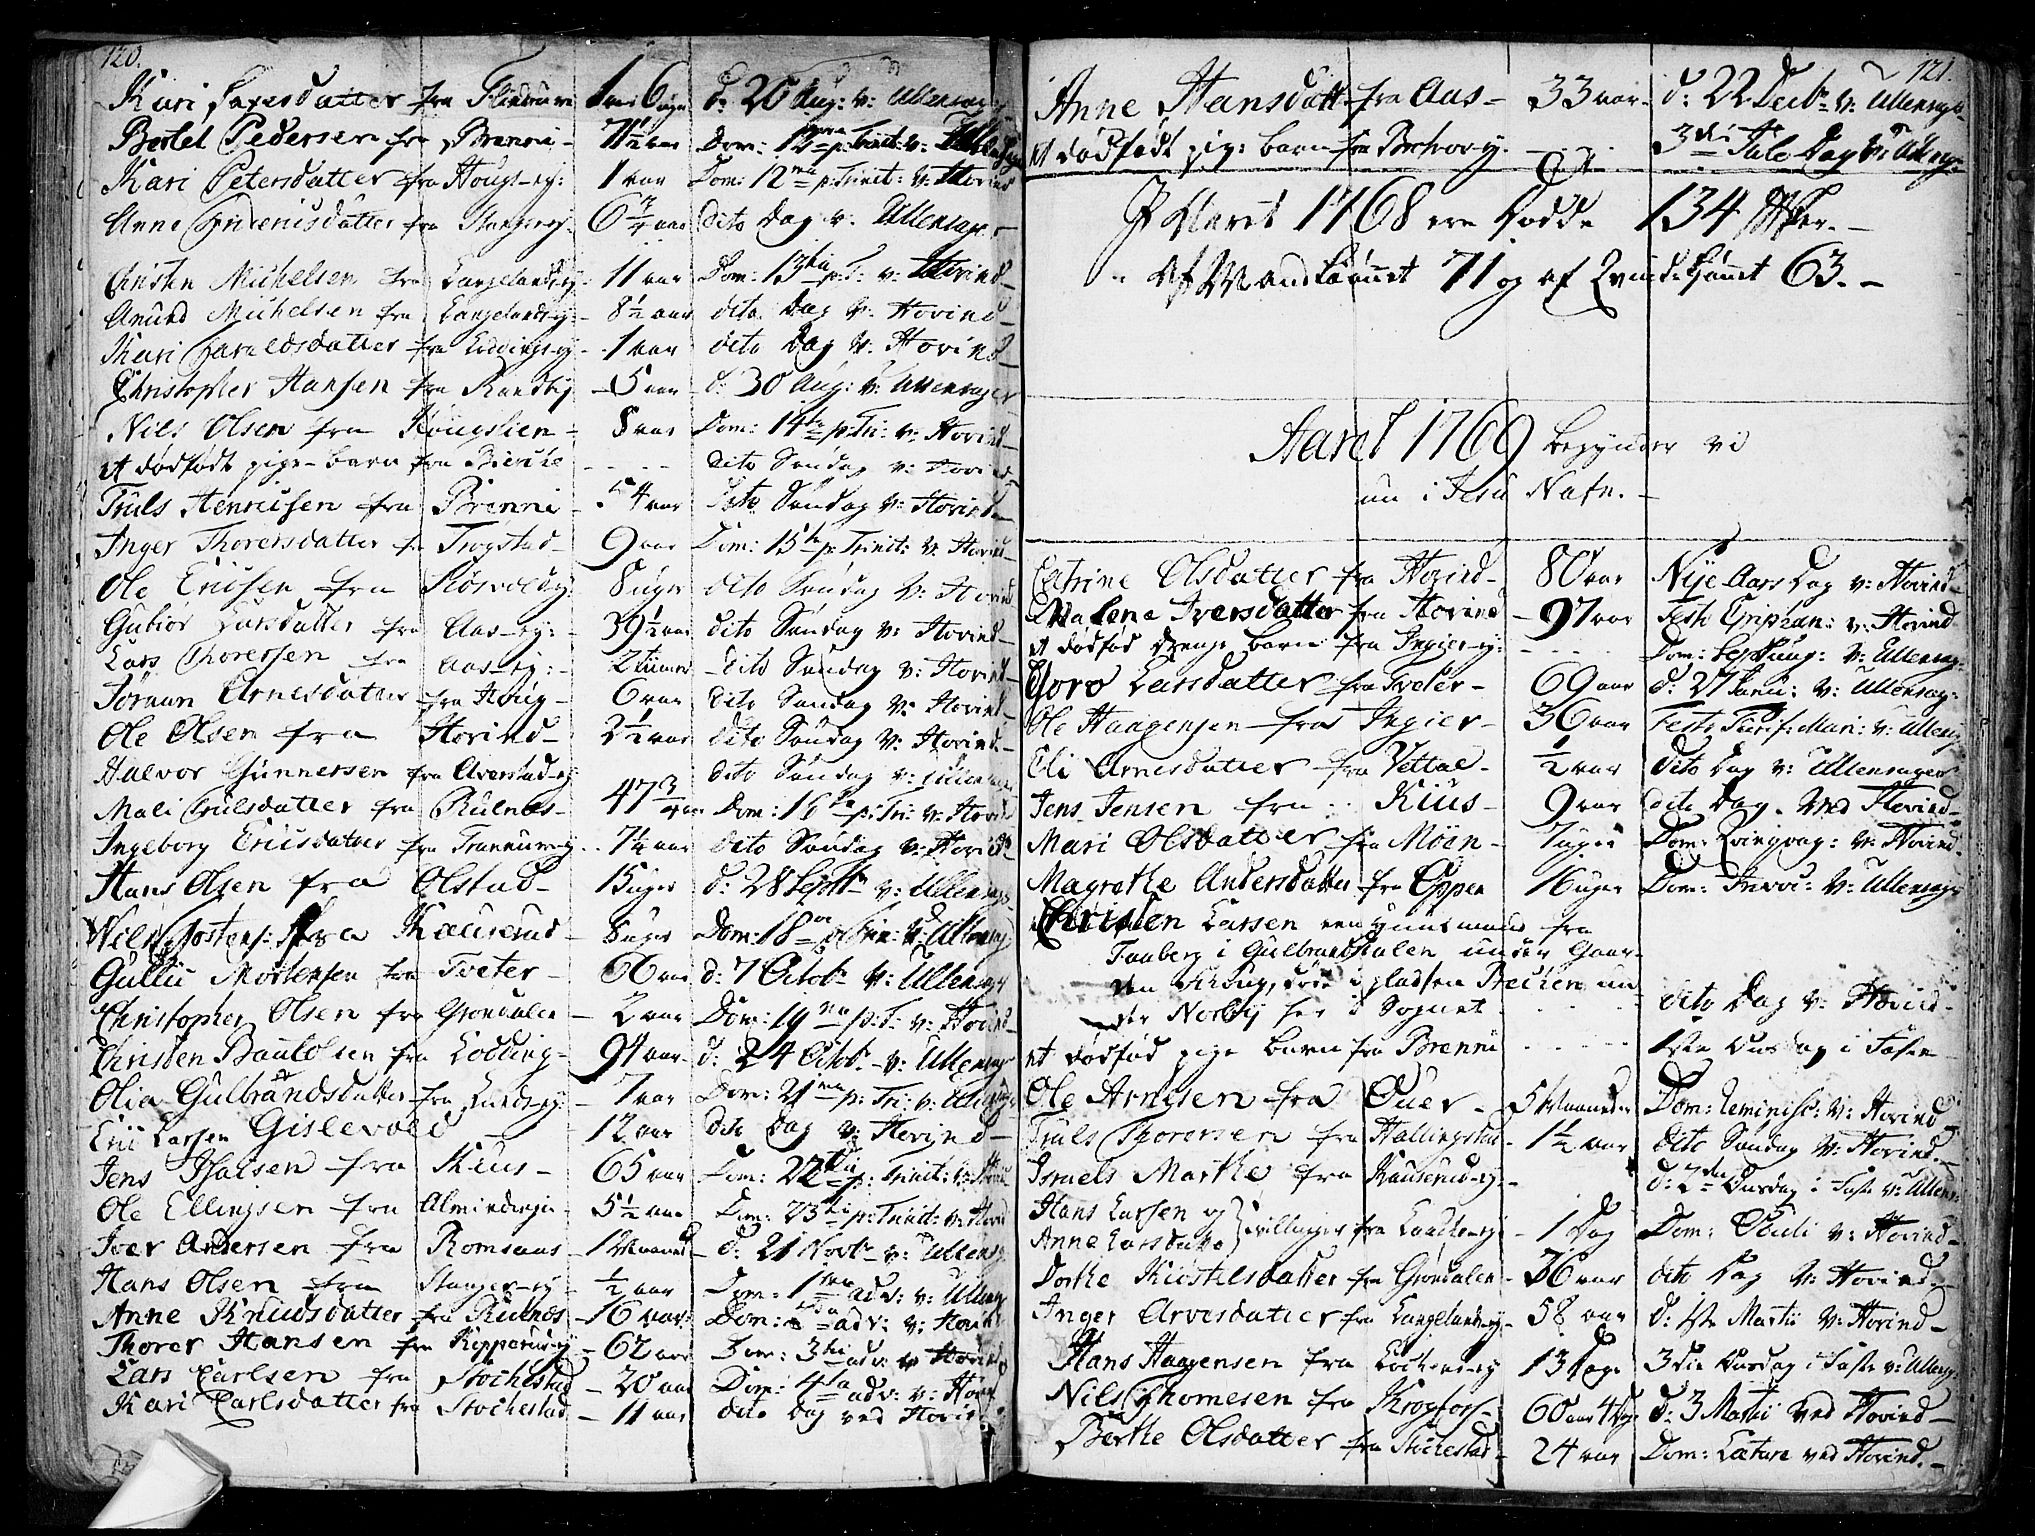 120.
Kari datter fra 1 aar 6 uger d: 20 Aug: v: Ullensager
Bertel Pedersen fra Brenni - 71½ aar Dom: 12 p: Trinit: v:
Kari Petersdatter fra Hougs-ey: 1 aar Dom: 12 p: Trinit: v: Hovind
Anne datter fra Stanger-ey: 6 aar dito Dag v: Ullensager
Christen Michelsen fra Langeland-ey: 11 aar Dom: 13 p: T: v: Hovind
Amund Michelsen fra Langelands-ey: 8½ aar dito Dag v: Hovind
Kari Haraldsdatter fra 1 aar dito Dag v: Hovind
Christopher Hansen fra Randby - 5 aar d: 30 Aug: v: Ullensager
Nils Olsen fra Kougslien - 8 aar Dom: 14 p: Tri: v: Hovind
et dødfødt pige-barn fra Bierche - - - - dito Søndag v: Hovind
Truls Henricsen fra Brenni - 54 aar dito Søndag v: Hovind
Inger Thorersdatter fra Trogstad - 9 aar Dom: 15 p: Trinit: v: Hovind
Ole Ericsen fra 8 uger dito Søndag v: Hovind
Gubiør Larsdatter fra Aas-ey: 39½ aar dito Søndag v: Hovind
Lars Thorersen fra Aas-ey: - 2 timer - dito Søndag v: Hovind
Jøraun Arnesdatter fra Houg - 6 aar dito Søndag v: Hovind
Ole Olsen fra Hovind - 2½ aar dito Søndag v: Hovind
Halvor Gunnersen fra Averstad-ey dito Søndag v: Ullensager
Mali Trulsdatter fra Rulnes - 47 3/4 aar Dom: 16 p: Tri: v: Hovind
Ingeborg Ericsdatter fra - 7¼ aar dito Søndag v: Hovind
Hans Olsen fra Olstad - 15 uger d: 28 Septbr v: Ullensager
Nils Jostens: fra Kauserud - 8 uger Dom: 18 p: Trin: v: Ullensag:
Gullic Mortensen fra Tveter - 66 aar d: 7 Octobr v: Ullensager
Christopher Olsen fra Grøndalen - 2 aar Dom: 19 p: T: v: Hovind
Christen Paulsen fra Lodding - 91 aar d: 24 Octobr v: Ullensager
Olia Gulbrandsdatter fra Lunds-ey: - 7 aar Dom: 21 p: Tri: v: Ullensag:
Eric Larsen Gislevold - 12 aar dito Dag v: Hovind
Jens Isacsen fra Kius - 65 aar Dom: 22 p: Trinit: v: Hovind
Ole Ellingsen fra - 5½ aar Dom: 23 p: Trinit: v: Hovind
Iver Andersen fra Romsaas - 1 Maaned - d: 21 Novbr v: Ullensag:
Hans Olsen fra Stanger-ey - ½ aar Dom: 1 adv: v: Ullensag:
Anne Knudsdatter fra Rulnes - 16 aar: Dom: adv: v: Hovind
Thorer Hansen fra - 62 aar Dom: 3 adv: v: Hovind
Lars Carlsen fra Stochestad - 20 aar Dom: 4 adv: v: Hovi
Kari Carlsdatter fra Stochestad - 11 aar dito Dag ved Hovind
121.
Anne Hansdatt: fra Aas - 33 aar - d: 22 Decbr v: Ullensag:
et dødfødt pige barn fra - - - - 3die Jule Dag v: Ullensag:
I Aaret 1768 ere døde 134 Sther. -
Af Mandkiønnet 71 og af Qvindekiønnet 63. -
Aaret 1769 begynder vi
nu i Jesu Nafn. -
Catrine Olsdatter fra Hovind - 80 aar Nye Aars Dag v: Hovind -
Malene Iversdatter fra Hovind - 97 aar Festo Epiphan: v: Hovind
et dødfød drenge barn fra Ingier-ey: - - - - Dom: Septuag: v: Ullensag:
Goro Larsdatter fra Tveter - 69 aar d: 27 Janu: v: Ullensag:
Ole Haagensen fra Ingier - 36 aar Festo Purif: Mari: v: Ullensag:
Eli Arnesdatter fra Vettal - ½ aar dito Dag v: Ullensager
Jens Jensen fra Kius - 9 aar dito Dag. ved Hovind -
Mari Olsdatter fra Moen - 7 uger Dom: Qvinqvag: v: Hovind -
Magrethe Andersdatter fra Oppen 16 uger Dom: Invoc: v: Ullensag:
Christen Larsen een mand fra
Faaberg i Gulbrandsdalen, under Gaar-
den døde i pladsen Brechen un-
der Norby her i Sognet - - - - dito Dag v: Hovind -
et dødfød pige barn fra Brenni - - - - 1ste Onsdag i Faste
Ole Arnesen fra Øuer - 5 Maaneder Dom: Reminisc: v: Hovind
Truls Thorersen fra Hallingstad - 1½ aar dito Søndag v: Hovind. -
Israels Marthe fra Kauserud-ey: - d: 2den Onsdag i Faste v: Ullens:
Hans Larsen og
Anne Larsdatter } tvillinger fra - 1 Dag Dom: Oculi v: Hovind -
Dorthe Kiostelsdatter fra Grøndalen - 36 aar dito Dag v: Hovind -
Inger Arvesdatter fra Langeland-ey - 58 aar d: 1ste Martii v: Hovind -
Hans Haagensen fra 13 dage 3die Onsdag i Faste v: Ullensag:
Nils Thomesen fra Krogfors - 60 aar 4 d: 3 Martii ved Hovind -
Berthe Olsdatter fra Stochestad - 24 aar Dom: Lætare ved Hovind. -